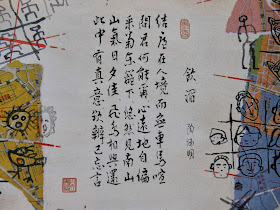 飲酒
陶淵明
結廬在人境而無車馬喧
問君何能爾心遠地自偏
采菊東籬下悠然見南山
山氣日夕佳飛鳥相與還
此中有真意欲辨已忘言